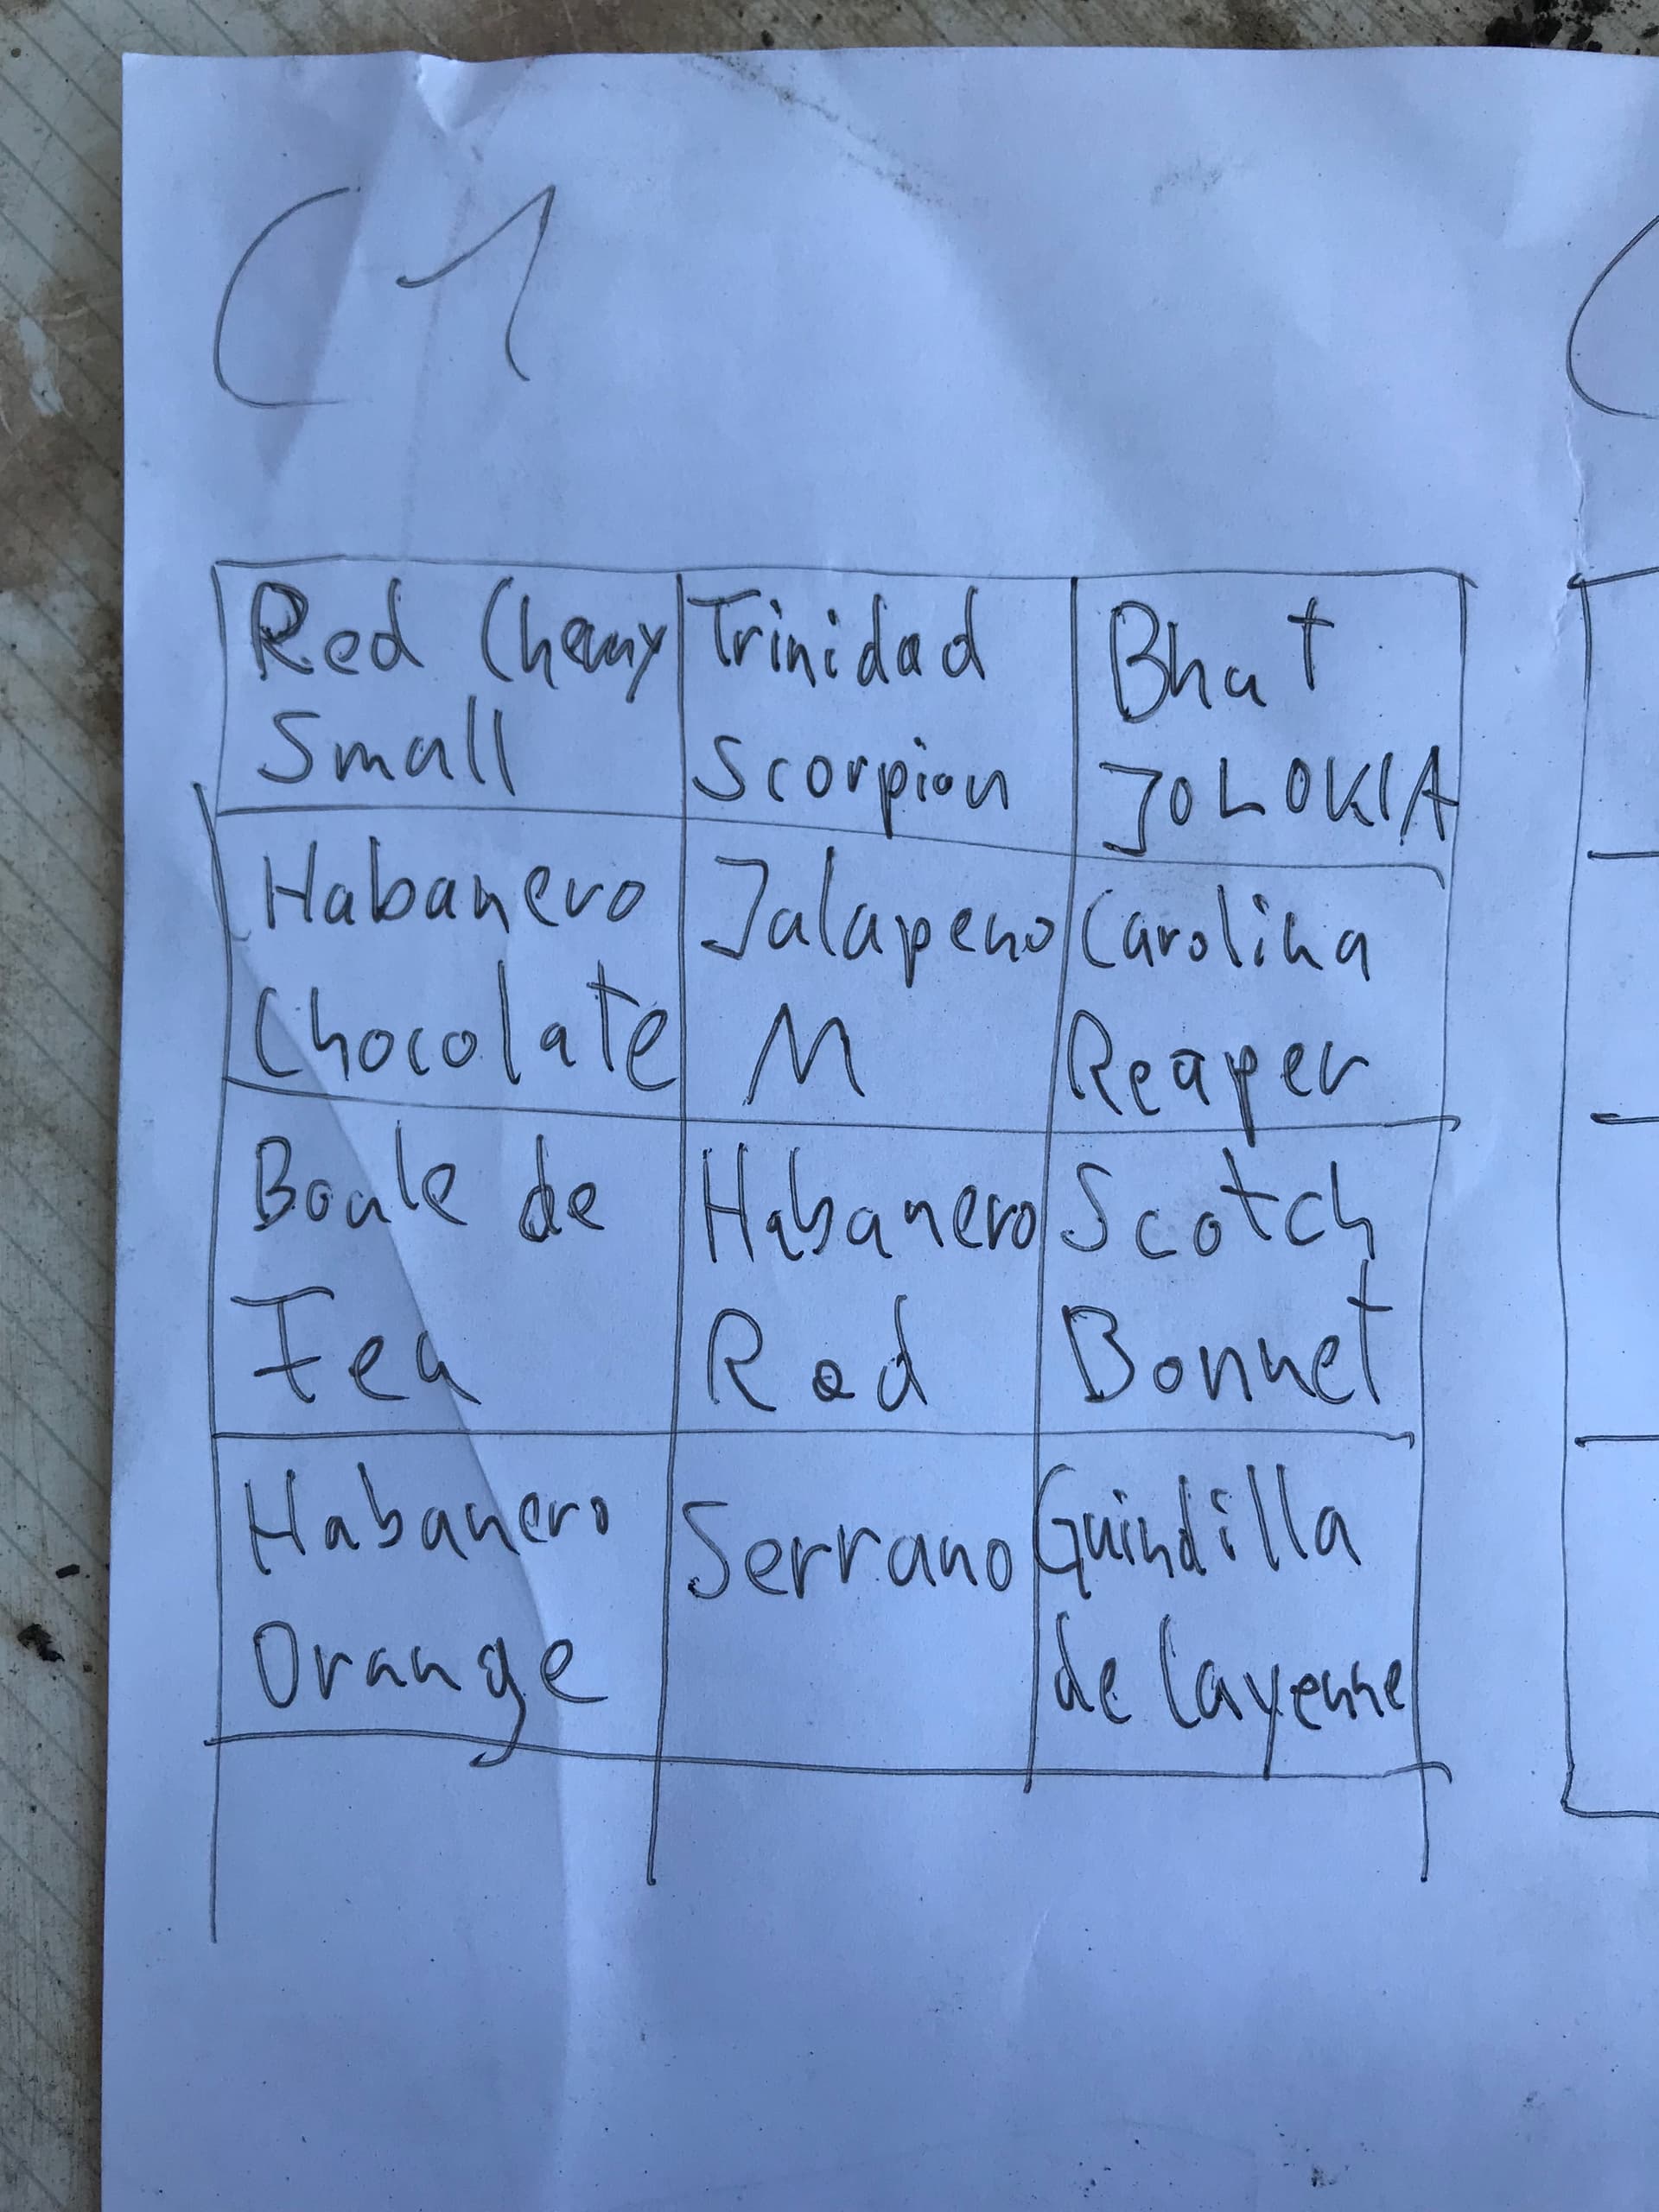 C1
Red Cherry Trinidad Bhut
Small Scorpion JOLOKIA
Habanero Jalapeno Carolina
Chocolate M Reaper
Boule de Habanero Scotch
Feu Red Bonnet
Habanero Serrano Guindilla
Orange de Cayenne